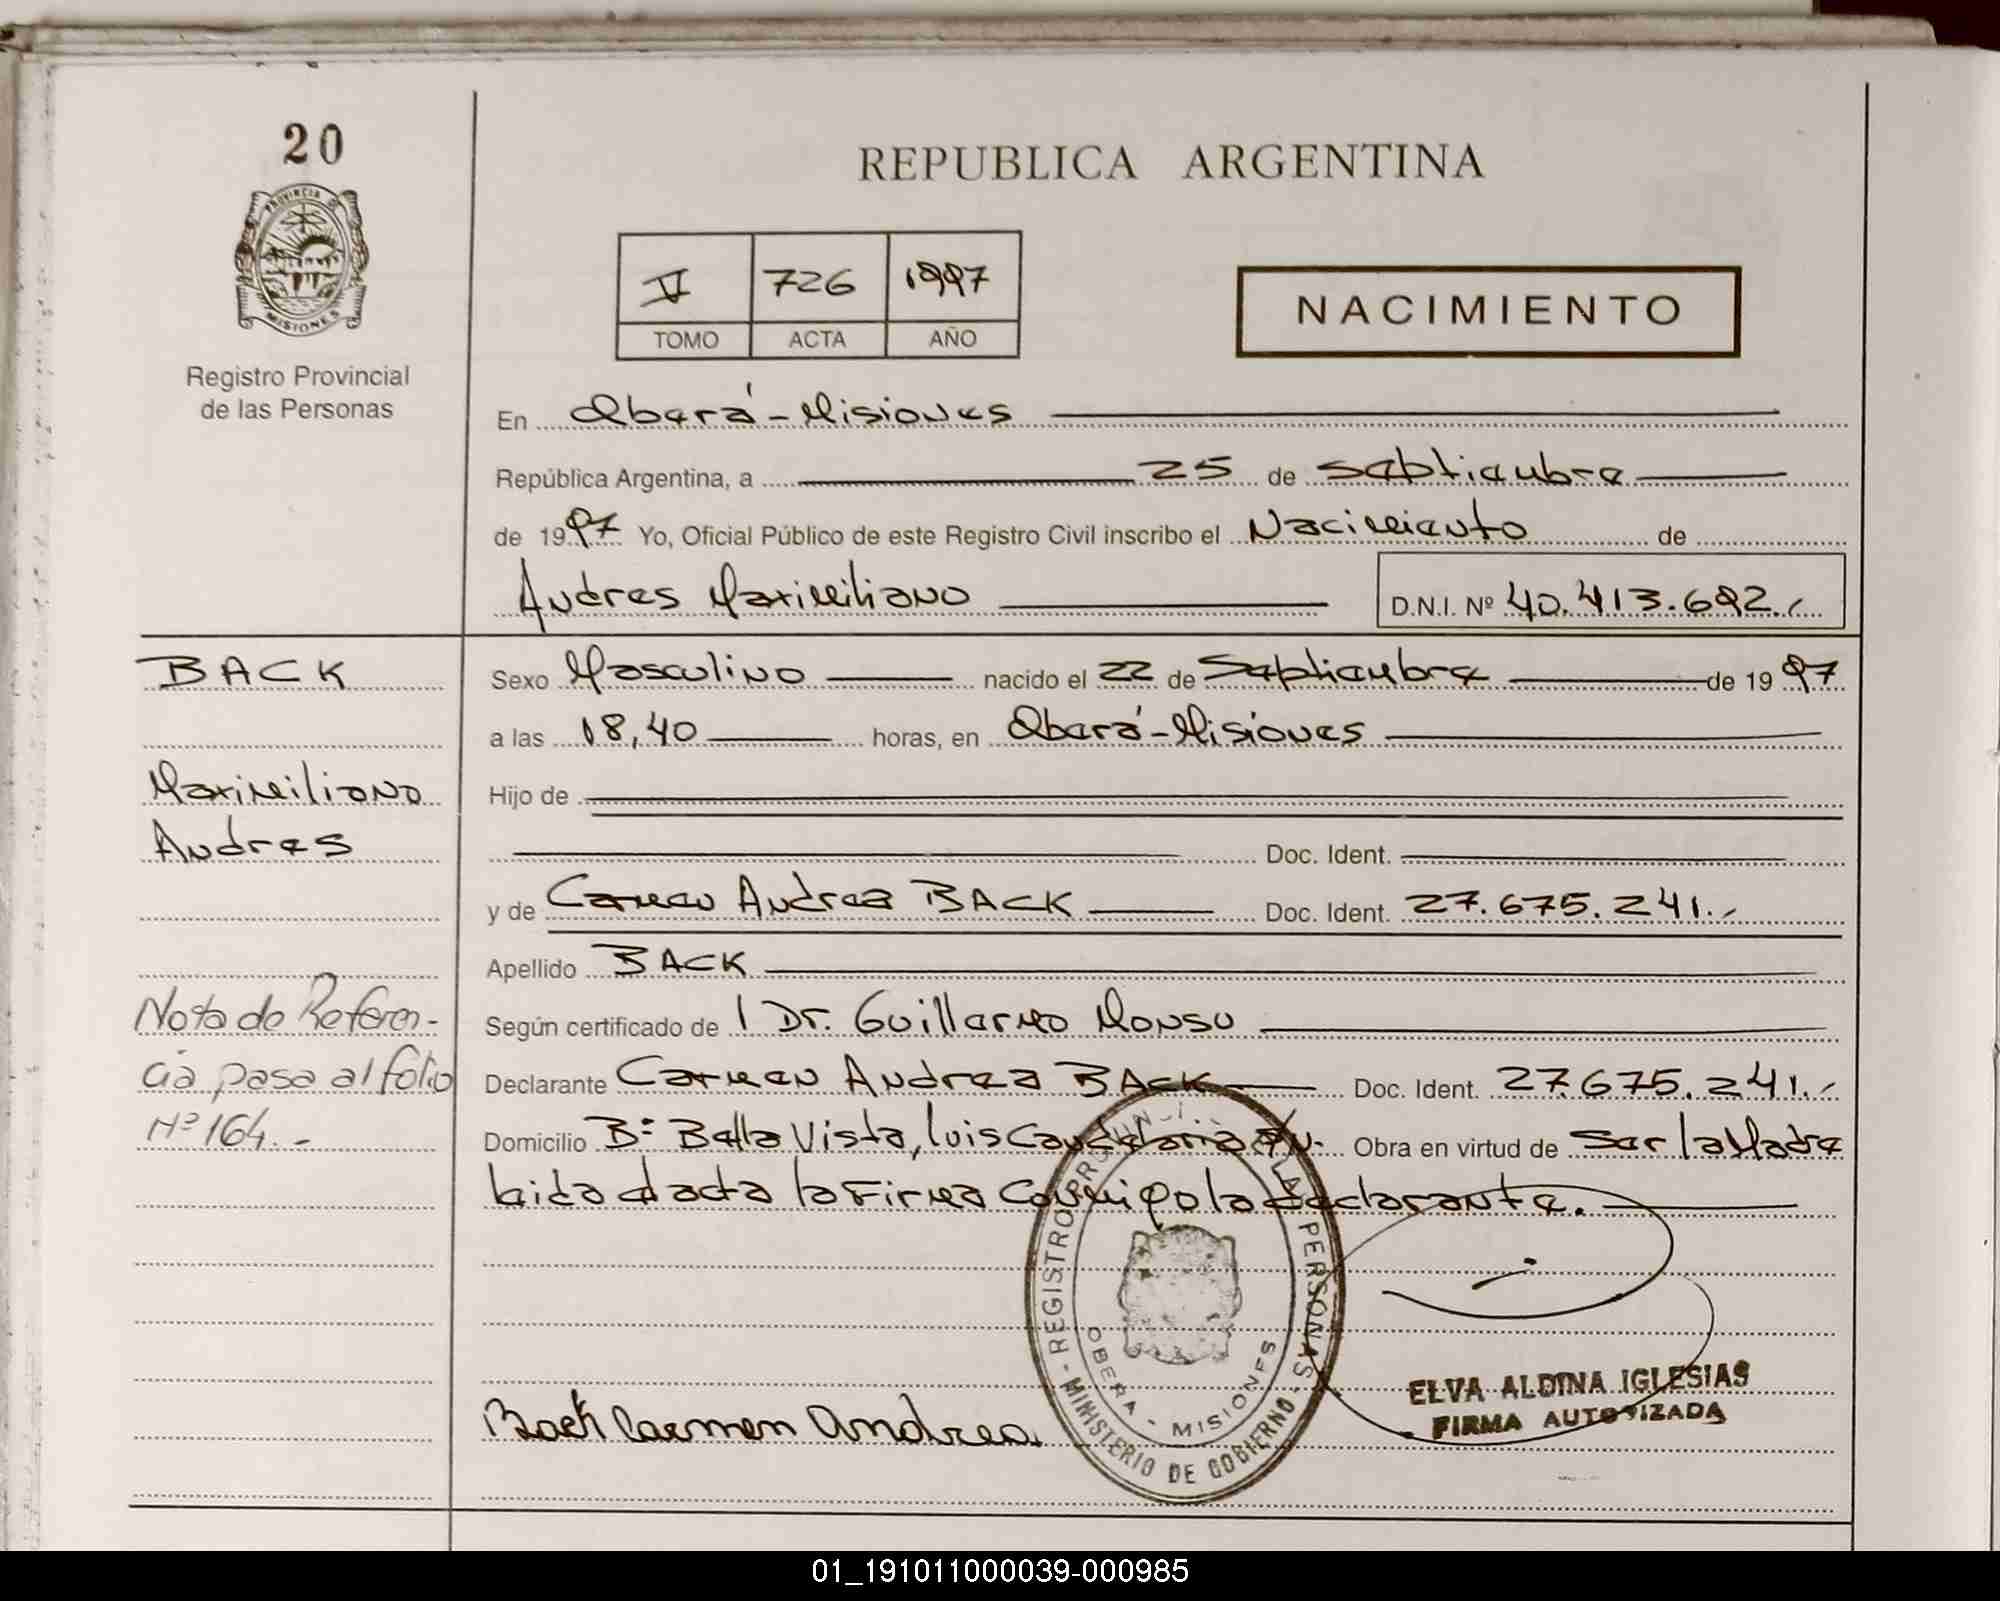 20
PROVINCIA D
MISIONES
Registro Provincial
de las Personas
REPUBLICA ARGENTINA
V 726 1997
TOMO ACTA AÑO
NACIMIENTO
En Oberá-Misiones
República Argentina, a 25 de Septiembre
de 1997 Yo, Oficial Público de este Registro Civil inscribo el Nacimiento de
Andres Maximiliano D.N.I. Nº 40.413.692.-
BACK
Sexo Masculino nacido el 22 de Septiembre de 1997
a las 18,40 horas, en Oberá-Misiones
Maximiliano
Hijo de
Andres
Doc. Ident.
y de Carmen Andrea BACK Doc. Ident. 27.675.241.-
Apellido BACK
Nota de Referen-
Según certificado de l Dr. Guillermo Monsu
cia pasa al folio
Declarante Carmen Andrea BACK Doc. Ident. 27.675.241.-
Nº 164.-
Domicilio Bº Bella Vista, Luis Candelaria s/n. Obra en virtud de Ser la Madre
leida dada la firma conmigo la declarante.
REGISTRO PERSONAS
OBERA - MISIONES
MINISTERIO DE GOBIERNO
ELVA ALDINA IGLESIAS
FIRMA AUTORIZADA
Back Carmen Andrea
01_191011000039-000985